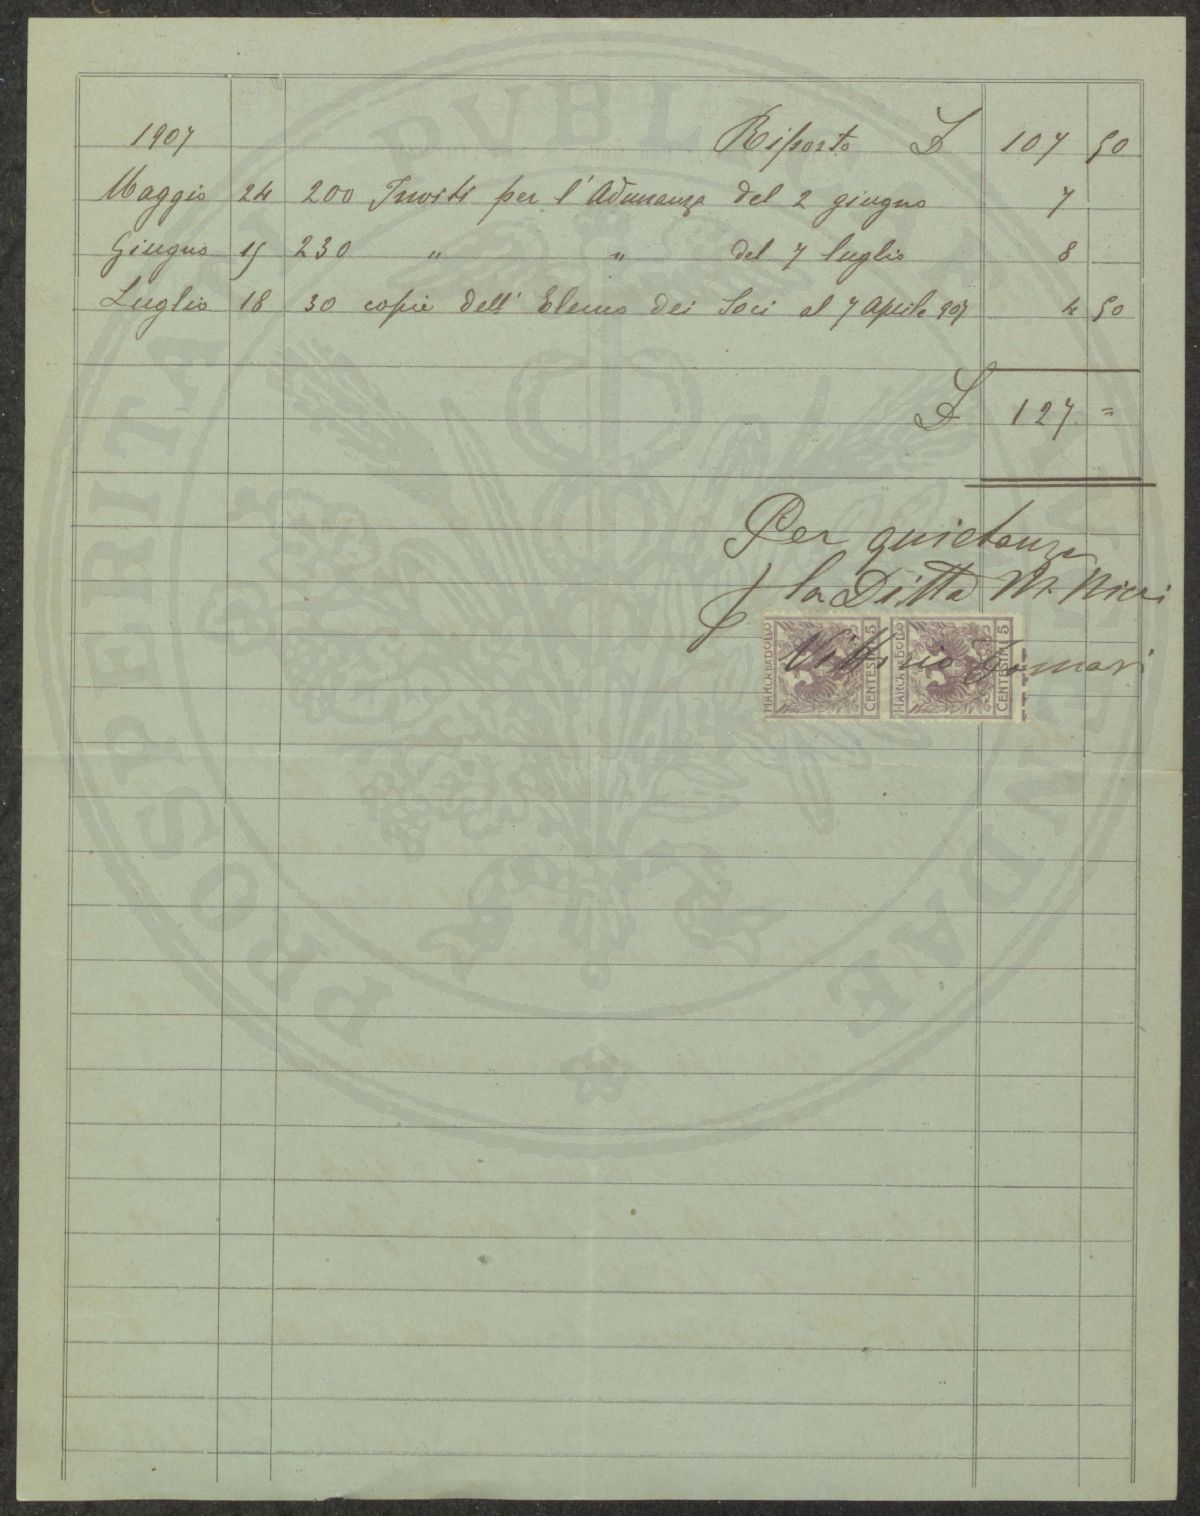 1907 Riporto L 107 50
Maggio 24 200 Inviti per l'Adunanza del 2 giugno 7
Giugno 15 230 " " del 7 luglio 8
Luglio 18 30 copie dell'Elenco dei Soci al 7 Aprile 907 4 50
L 127 =
Per quietanza
p la Ditta M. Ricci
Vittorio
MARCA DA BOLLO CENTESIMI 5
MARCA DA BOLLO CENTESIMI 5
PROSPERITATI PVBLICAE AVGENDAE